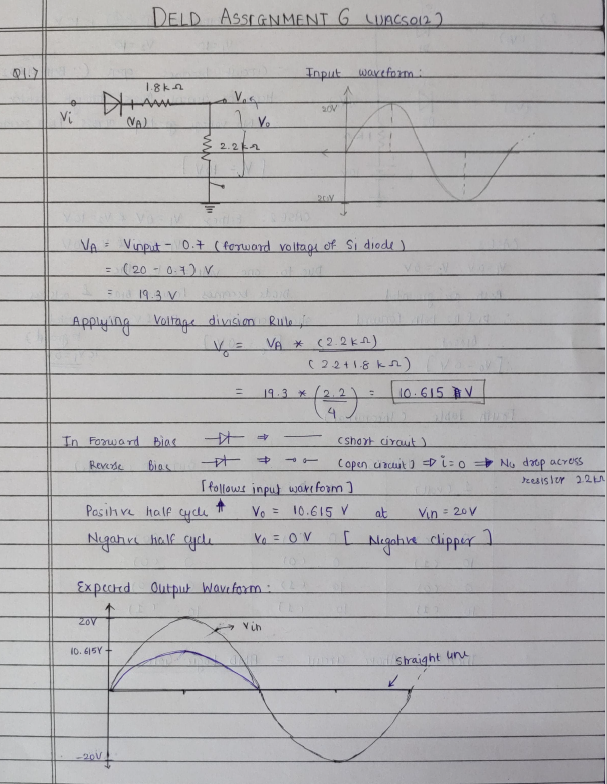 DELD ASSIGNMENT 6 (UACS012)
Q1.7
Input waveform:
1.8kΩ
Vi
(VA)
Vo
20V
2.2kΩ
20V
VA = Vinput - 0.7 (forward voltage of Si diode)
= (20 - 0.7) V
= 19.3 V
Applying Voltage division Rule,
Vo = VA * (2.2kΩ)
(2.2+1.8 kΩ)
= 19.3 * (2.2/4) = 10.615 V
In Forward Bias ⇒ (short circuit)
Reverse Bias ⇒ (open circuit) ⇒ i=0 ⇒ No drop across
resistor 2.2kΩ
[follows input waveform]
Positive half cycle ↑ Vo = 10.615 V at Vin = 20V
Negative half cycle Vo = 0 V [Negative clipper]
Expected Output Waveform:
20V
Vin
10.615V
straight line
-20V